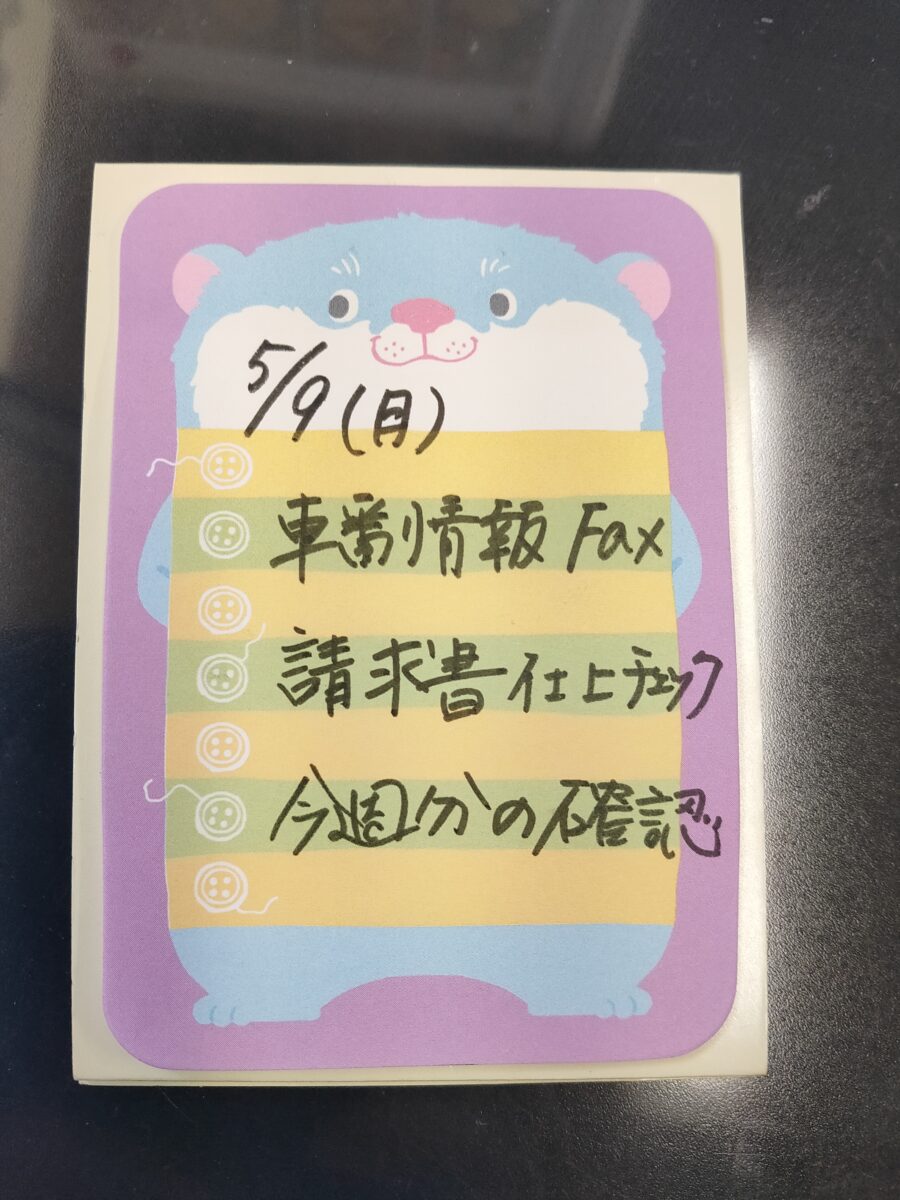 5/9(月)
車番別情報 Fax
請求書仕上チェック
今週分の確認